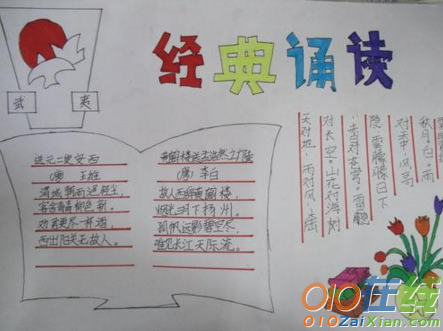 经典诵读
武 夷
送元二使安西
(唐) 王维
渭城朝雨浥轻尘,
客舍青青柳色新。
劝君更尽一杯酒,
西出阳关无故人。
黄鹤楼送孟浩然之广陵
(唐) 李白
故人西辞黄鹤楼,
烟花三月下扬州。
孤帆远影碧空尽,
唯见长江天际流。
天对地，雨对风。大陆
对长空。山花对海树
，赤日对苍穹。雷隐
隐，雾蒙蒙。日下
对天中。风高
秋月白，
010在线
010ZaiXian.com